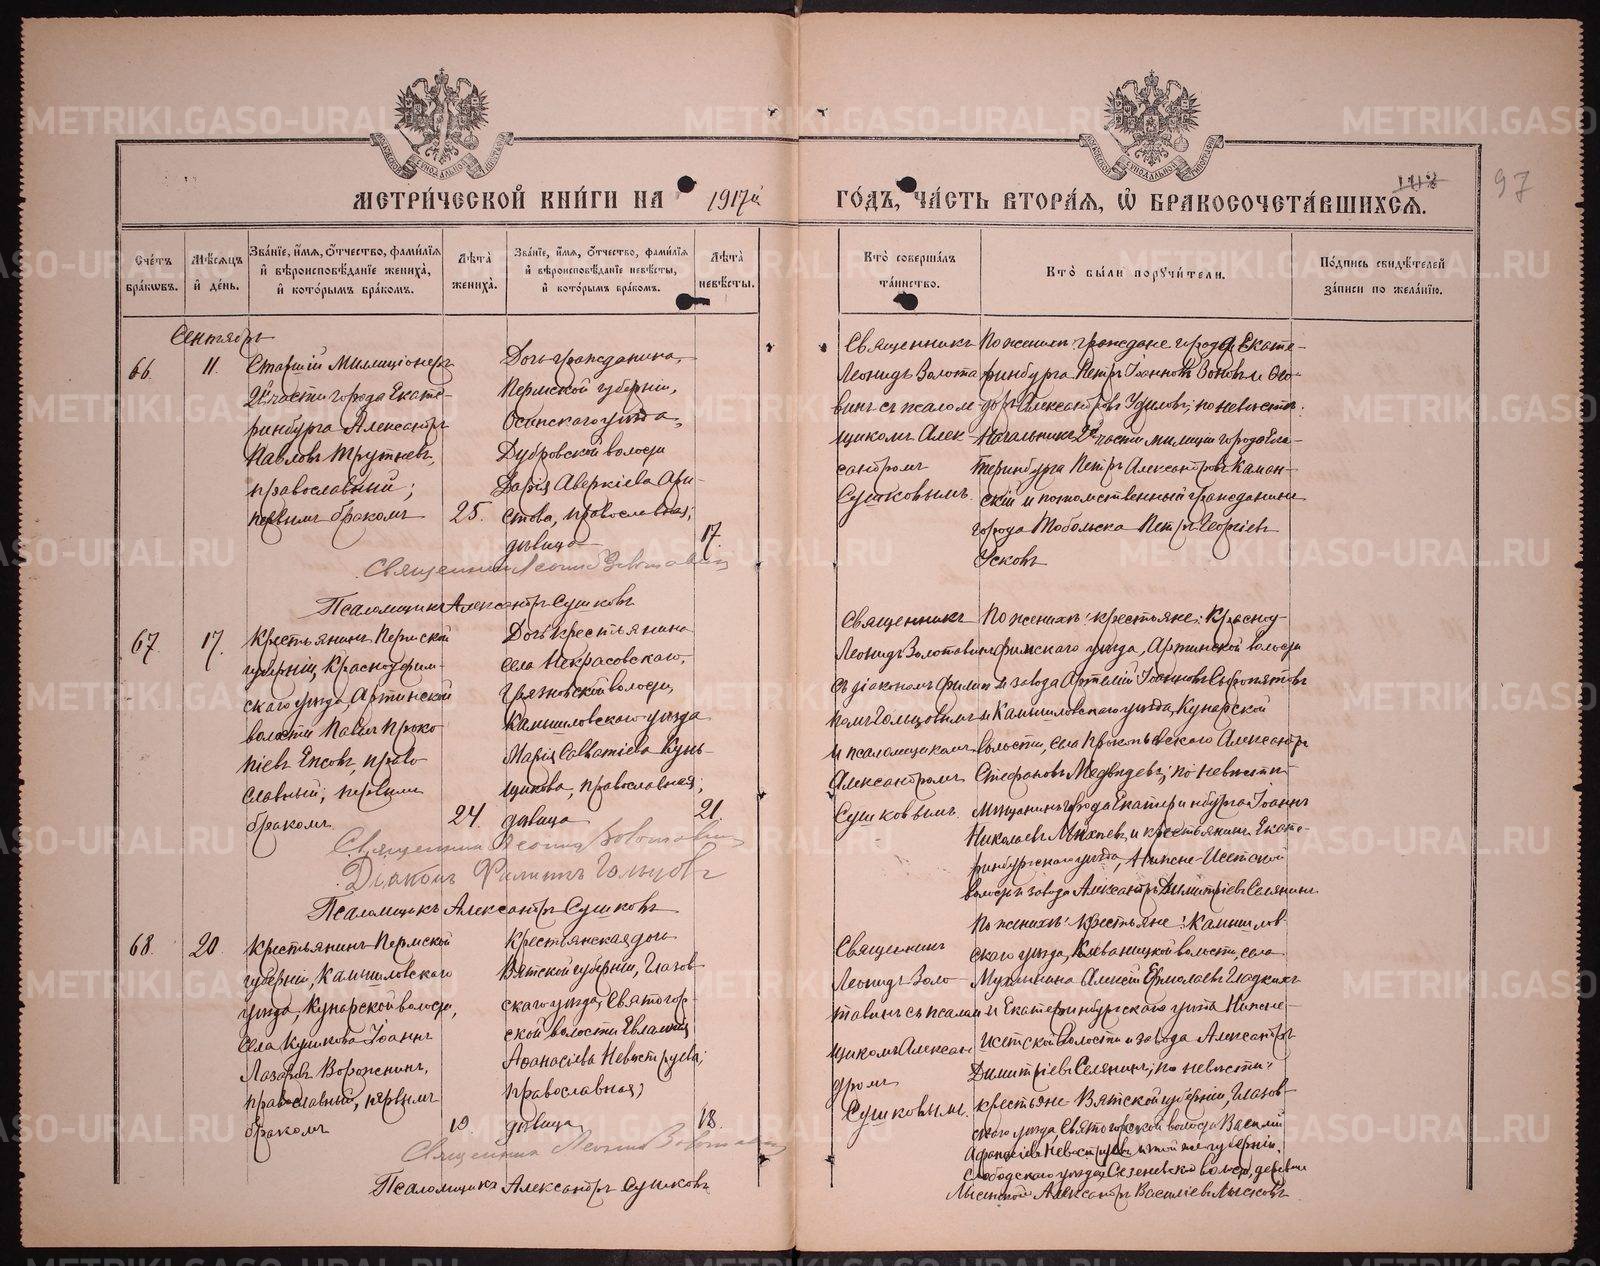 МЕТРИ́ЧЕСКОЙ КНИ́ГИ НА 1917й ГО́ДЪ, ЧА́СТЬ ВТОРА́Я, Ѡ БРАКОСОЧЕТА́ВШИХСЯ.
97
Сче́тъ бра́ковъ.
Мѣ́сяцъ и́ де́нь.
Зва́нїе, и́мя, о́тчество, фами́лїя и́ вѣроисповѣ́данїе жениха̀, и́ кото́рымъ бра́комъ.
Лѣ́та жениха̀.
Зва́нїе, и́мя, о́тчество, фами́лїя и́ вѣроисповѣ́данїе невѣ́сты, и́ кото́рымъ бра́комъ.
Лѣ́та невѣ́сты.
Кто̀ соверша́лъ та́инство.
Кто̀ бы́ли поручи́тели.
По́дпись свидѣ́телей за́писи по жела́нїю.
Сентябрь
66.
11.
Старшій Милиціонеръ
2й части города Екате-
ринбурга Александръ
Павловъ Трутневъ,
православный;
первымъ бракомъ
25.
Дочь гражданина,
Пермской губерніи,
Осинскаго уѣзда,
Дубровской волости
Дарія Аверкіева Ари-
стова, православная;
дѣвица
17.
Священникъ
Леонидъ Золота
винъ съ псалом-
щикомъ Алек-
сандромъ
Сушковымъ.
По женихѣ: граждане города Екате-
ринбурга Петръ Іоанновъ Зоновъ и Ѳео-
доръ Александровъ Удиловъ; по невѣстѣ:
Начальникъ 2й части милиціи города Ека-
теринбурга Петръ Александровъ Каман-
скій и потомственный гражданинъ
города Тобольска Петръ Георгіевъ
Усковъ
Священникъ Леонидъ Золотавинъ
Псаломщикъ Александръ Сушковъ
67.
17.
Крестьянинъ Пермской
губерніи, Красноуфим-
скаго уѣзда, Артинской
волости Павелъ Проко
піевъ Епсовъ, право
славный; первымъ
бракомъ
24.
Дочь крестьянина
села Некрасовскаго,
Грязновской волости,
Камышловскаго уѣзда
Марія Савватіева Кунь-
щикова, православная;
дѣвица
21.
Священникъ
Леонидъ Золотавинъ
съ діакономъ Филип
помъ Гольцовымъ
и псаломщикомъ
Александромъ
Сушковымъ.
По женихѣ: крестьяне: Красноу-
фимскаго уѣзда, Артинской волости
и завода Артемій Іоанновъ Сыропятовъ
и Камышловскаго уѣзда, Кунарской
волости, села Прокопьевскаго Александръ
Стефановъ Медвѣдевъ; по невѣстѣ:
Мѣщанинъ города Екатеринбурга Іоаннъ
Николаевъ Михѣевъ и крестьянинъ Екате-
ринбургскаго уѣзда, Нижне-Исетской
волости и завода Александръ Димитріевъ Селянинъ
Священникъ Леонидъ Золотавинъ
Діаконъ Филиппъ Гольцовъ
Псаломщикъ Александръ Сушковъ
68.
20.
Крестьянинъ Пермской
губерніи, Камышловскаго
уѣзда, Кунарской волости,
села Кушкова Іоаннъ
Лазаревъ Ворожнинъ,
православный, первымъ
бракомъ
19.
Крестьянская дочь
Вятской губерніи, Глазов-
скаго уѣзда, Святогор-
ской волости Евлампія
Аѳанасіева Невоструева;
православная;
дѣвица
18.
Священникъ
Леонидъ Золо-
тавинъ съ псалом
щикомъ Алексан
дромъ
Сушковымъ.
По женихѣ: крестьяне: Камышлов-
скаго уѣзда, волости, села
Мухлынина Алексій Ермолаевъ Гладкихъ
и Екатеринбургскаго уѣзда Нижне-
Исетской волости и завода Александръ
Димитріевъ Селянинъ; по невѣстѣ:
крестьяне Вятской губерніи, Глазов-
скаго уѣзда, Святогорской волости Василій
Аѳанасіевъ Невоструевъ и той же губерніи,
Слободскаго уѣзда, Сезеневской волости, деревни
Лысенской Александръ Василіевъ Лысковъ
Священникъ Леонидъ Золотавинъ
Псаломщикъ Александръ Сушковъ
METRIKI.GASO-URAL.RU